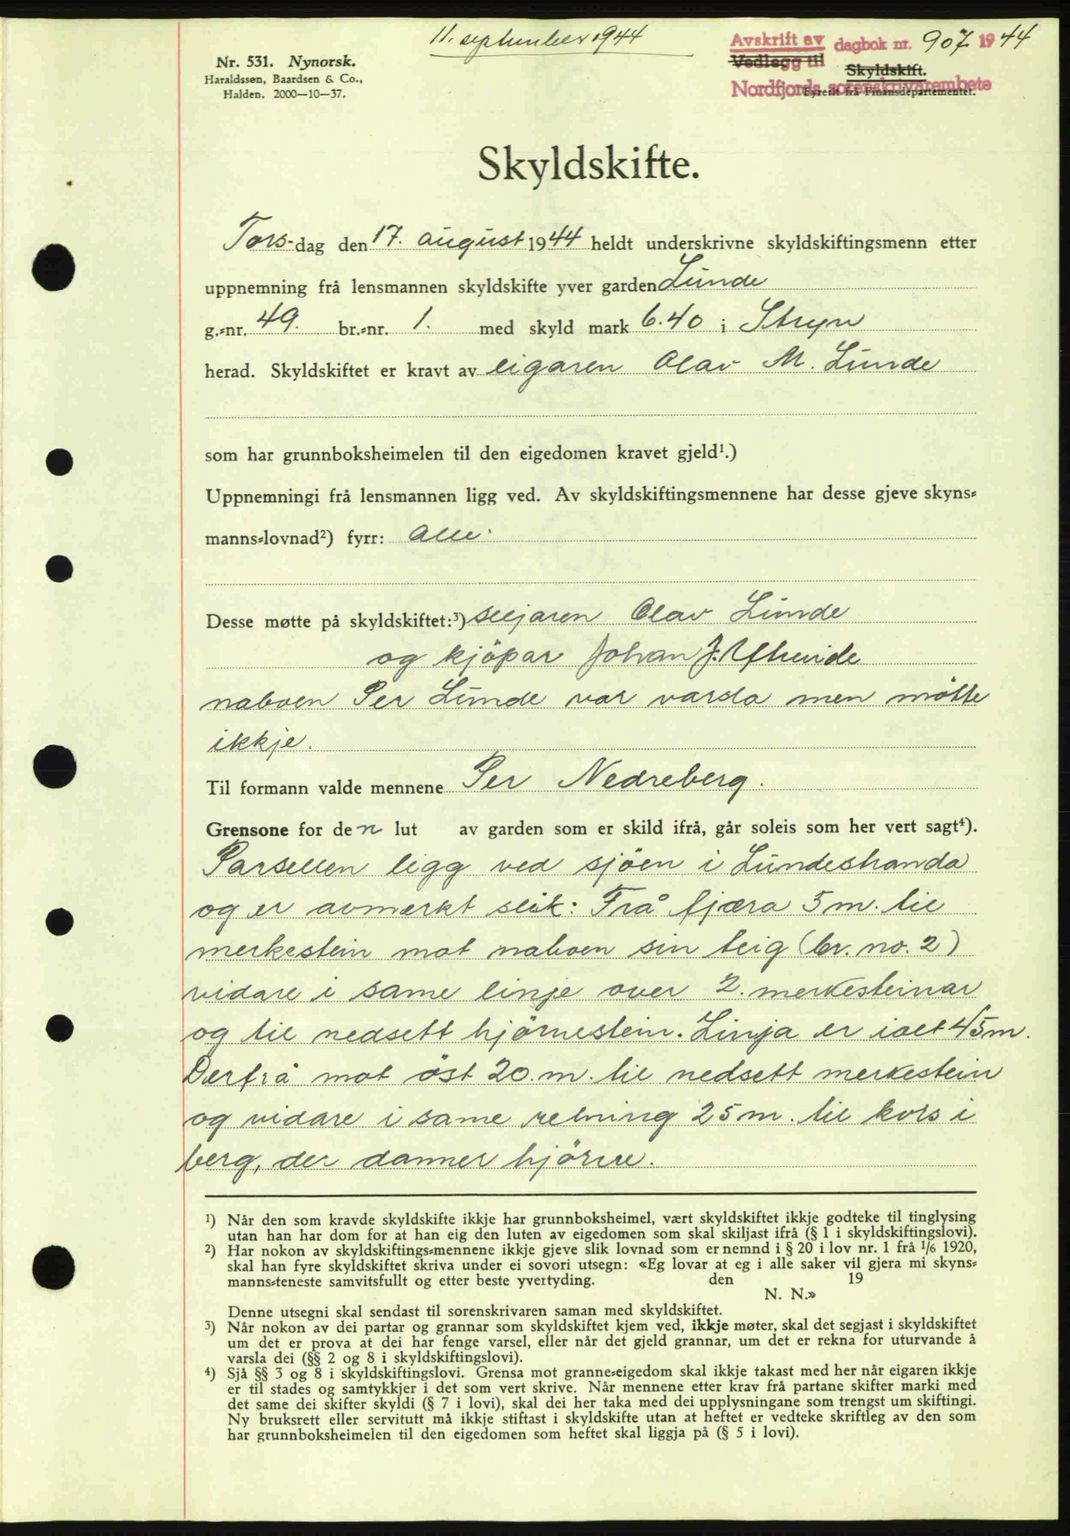 11. september 1944
Avskrift av dagbok nr. 907 1944
Vedlegg til
Skyldskift.
Nordfjords sorenskrivarembete
Fyreskr. frå Finansdepartementet.
Nr. 531. Nynorsk.
Haraldssøn, Baardsen & Co.,
Halden. 2000—10—37.
Skyldskifte.
Tors-dag den 17. august 1944 heldt underskrivne skyldskiftingsmenn etter
uppnemning frå lensmannen skyldskifte yver garden Lunde
g.-nr. 49. br.-nr. 1. med skyld mark 6.40 i Stryn
herad. Skyldskiftet er kravt av eigaren Olav M. Lunde
som har grunnboksheimelen til den eigedomen kravet gjeld¹.)
Uppnemningi frå lensmannen ligg ved. Av skyldskiftingsmennene har desse gjeve skyns-
manns-lovnad²) fyrr: alle.
Desse møtte på skyldskiftet:³) seljaren Olav Lunde
og kjöpar Johan J.
naboen Per Lunde var varsla men mötte
ikkje.
Til formann valde mennene Per Nedreberg.
Grensone for den lut av garden som er skild ifrå, går soleis som her vert sagt⁴).
Parsellen ligg ved sjöen i Lundestranda
og er avmerkt slik: Frå fjæra 5 m. til
merkestein mot naboen sin teig (br. no. 2)
vidare i same linje over 2. merkesteinar
og til nedsett hjörnestein. Linja er ialt 45 m.
Derfrå mot öst 20. m. til nedsett merkestein
og vidare i same retning 25 m. til kors i
berg, der danner hjörne.
¹) Når den som kravde skyldskifte ikkje har grunnboksheimel, vært skyldskiftet ikkje godteke til tinglysing
utan han har dom for at han eig den luten av eigedomen som skal skiljast ifrå (§ 1 i skyldskiftingslovi).
²) Har nokon av skyldskiftings-mennene ikkje gjeve slik lovnad som er nemnd i § 20 i lov nr. 1 frå 1/6 1920,
skal han fyre skyldskiftet skriva under ei sovori utsegn: «Eg lovar at eg i alle saker vil gjera mi skyns-
manns-teneste samvitsfullt og etter beste yvertyding. den 19
N. N.»
Denne utsegni skal sendast til sorenskrivaren saman med skyldskiftet.
³) Når nokon av dei partar og grannar som skyldskiftet kjem ved, ikkje møter, skal det segjast i skyldskiftet
um det er prova at dei har fenge varsel, eller når det gjeld grannar, um det er rekna for uturvande å
varsla dei (§§ 2 og 8 i skyldskiftingslovi).
⁴) Sjå §§ 3 og 8 i skyldskiftingslovi. Grensa mot granne-eigedom skal ikkje takast med her når eigaren ikkje
er til stades og samtykkjer i det som vert skrive. Når mennene etter krav frå partane skifter marki med
det same dei skifter skyldi (§ 7 i lovi), skal dei her taka med dei upplysningane som trengst um skiftingi.
Ny bruksrett eller servitutt må ikkje stiftast i skyldskifte utan at heftet er vedteke skriftleg av den som
har grunnboksheimelen til den eigedomen som heftet skal liggja på (§ 5 i lovi).